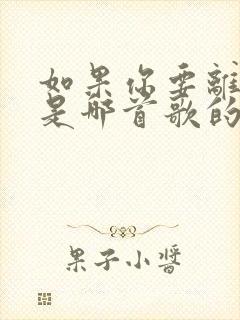 如果你要離
是哪首歌的
果子小醬